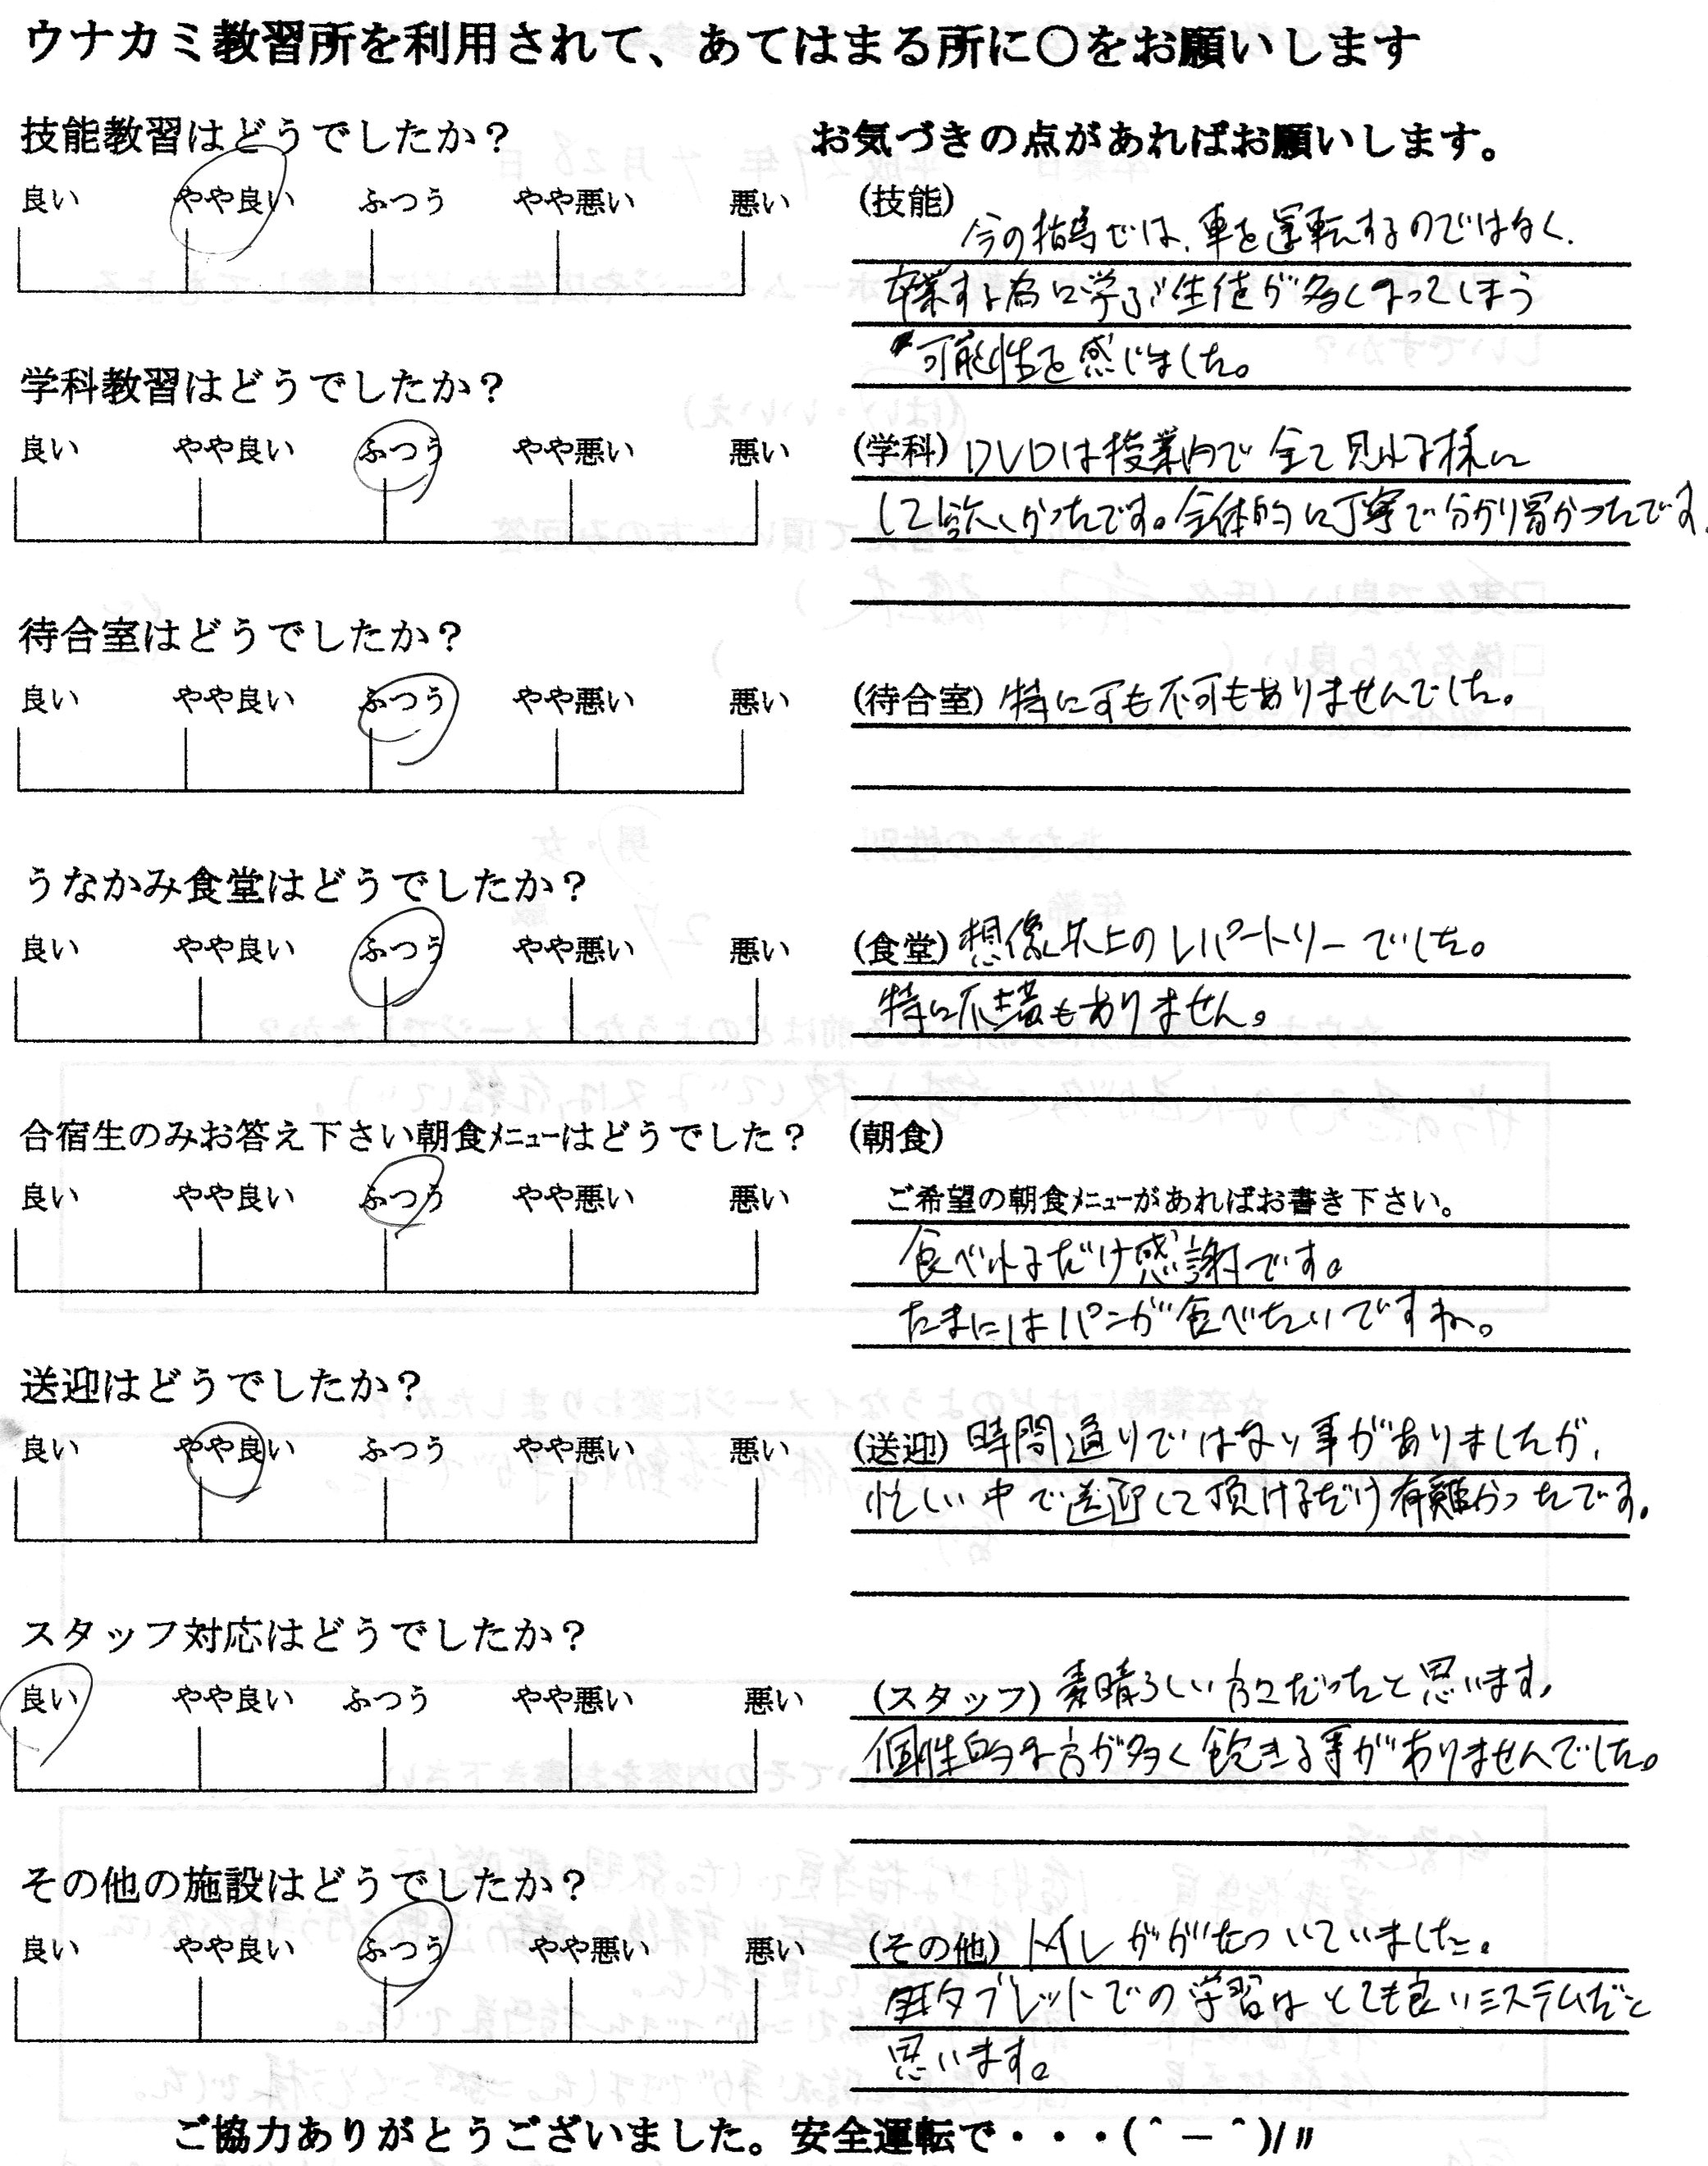 ウナカミ教習所を利用されて、あてはまる所に〇をお願いします
技能教習はどうでしたか？
お気づきの点があればお願いします。
良い やや良い ふつう やや悪い 悪い
(技能)
今の指導では、車を運転するのではなく、
卒業する為に学ぶ生徒が多くなってしまう
可能性を感じました。
学科教習はどうでしたか？
良い やや良い ふつう やや悪い 悪い
(学科) DVDは授業内で全て見れる様に
して欲しかったです。全体的に丁寧で分かり易かったです。
待合室はどうでしたか？
良い やや良い ふつう やや悪い 悪い
(待合室) 特に可も不可もありませんでした。
うなかみ食堂はどうでしたか？
良い やや良い ふつう やや悪い 悪い
(食堂) 想像以上のレパートリーでした。
特に不満もありません。
合宿生のみお答え下さい朝食メニューはどうでした？
(朝食)
良い やや良い ふつう やや悪い 悪い
ご希望の朝食メニューがあればお書き下さい。
食べれるだけ感謝です。
たまにはパンが食べたいですね。
送迎はどうでしたか？
良い やや良い ふつう やや悪い 悪い
(送迎) 時間通りではない事がありましたが、
忙しい中で送迎して頂けるだけ有難かったです。
スタッフ対応はどうでしたか？
良い やや良い ふつう やや悪い 悪い
(スタッフ) 素晴らしい方々だったと思います。
個性的な方が多く飽きる事がありませんでした。
その他の施設はどうでしたか？
良い やや良い ふつう やや悪い 悪い
(その他) トイレががたついていました。
タブレットでの学習はとても良いシステムだと
思います。
ご協力ありがとうございました。安全運転で・・・(＾－＾)/〃